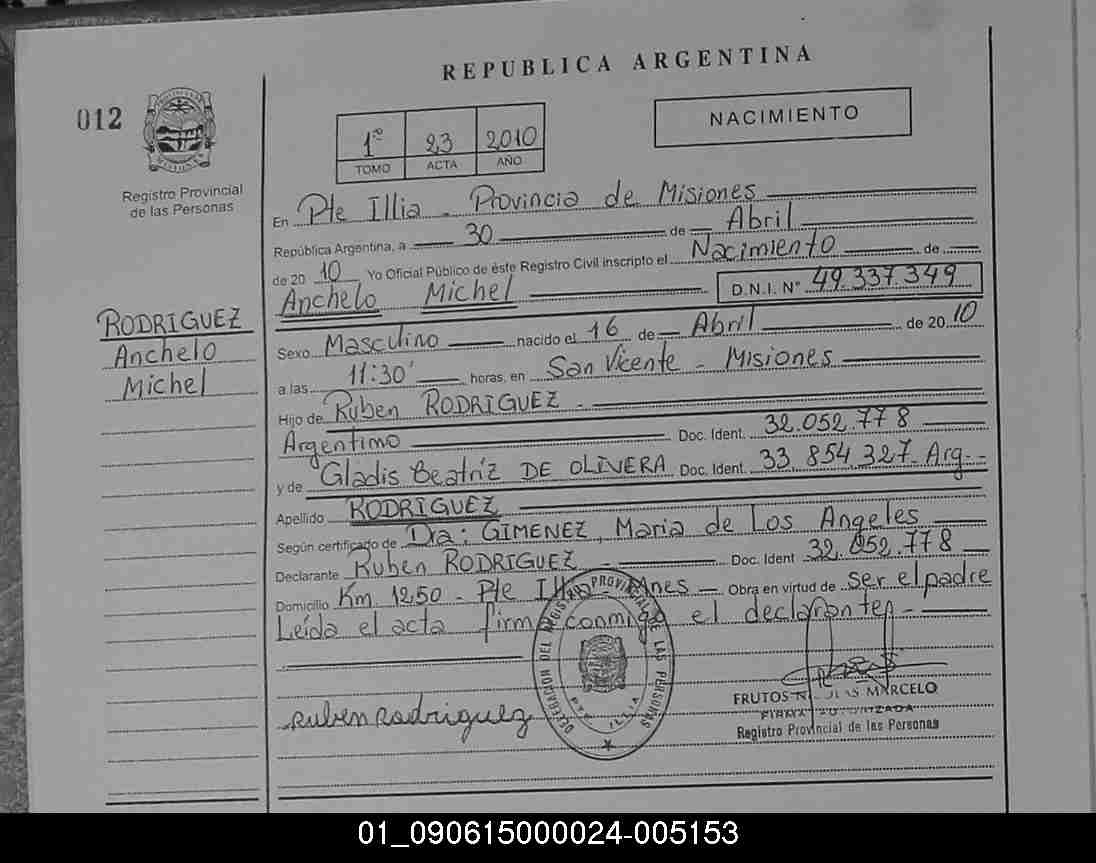 REPUBLICA ARGENTINA
012
NACIMIENTO
1º 23 2010
TOMO ACTA AÑO
Registro Provincial
de las Personas
En Pte Illia - Provincia de Misiones
República Argentina, a 30 de Abril
de 2010 Yo Oficial Público de éste Registro Civil inscripto el Nacimiento de
Anchelo Michel D.N.I. Nº 49.337.349
RODRIGUEZ
Anchelo
Michel
Sexo Masculino nacido el 16 de Abril de 2010
a las 11:30' horas, en San Vicente - Misiones
Hijo de Ruben RODRIGUEZ -
Argentino Doc. Ident. 32.052.778
y de Gladis Beatriz DE OLIVERA Doc. Ident. 33.854.327- Arg.-
Apellido RODRIGUEZ
Según certificado de Dra: GIMENEZ, Maria de Los Angeles
Declarante Ruben RODRIGUEZ - Doc. Ident 32.052.778
Domicilio Km. 1250 - Pte Illia - Mnes - Obra en virtud de ser el padre
Leída el acta firma conmigo el declarante
DELEGACION DEL REGISTRO PROVINCIAL DE LAS PERSONAS
ILLIA
Ruben Rodriguez
FRUTOS MARCELO
FIRMA AUTORIZADA
Registro Provincial de las Personas
01_090615000024-005153